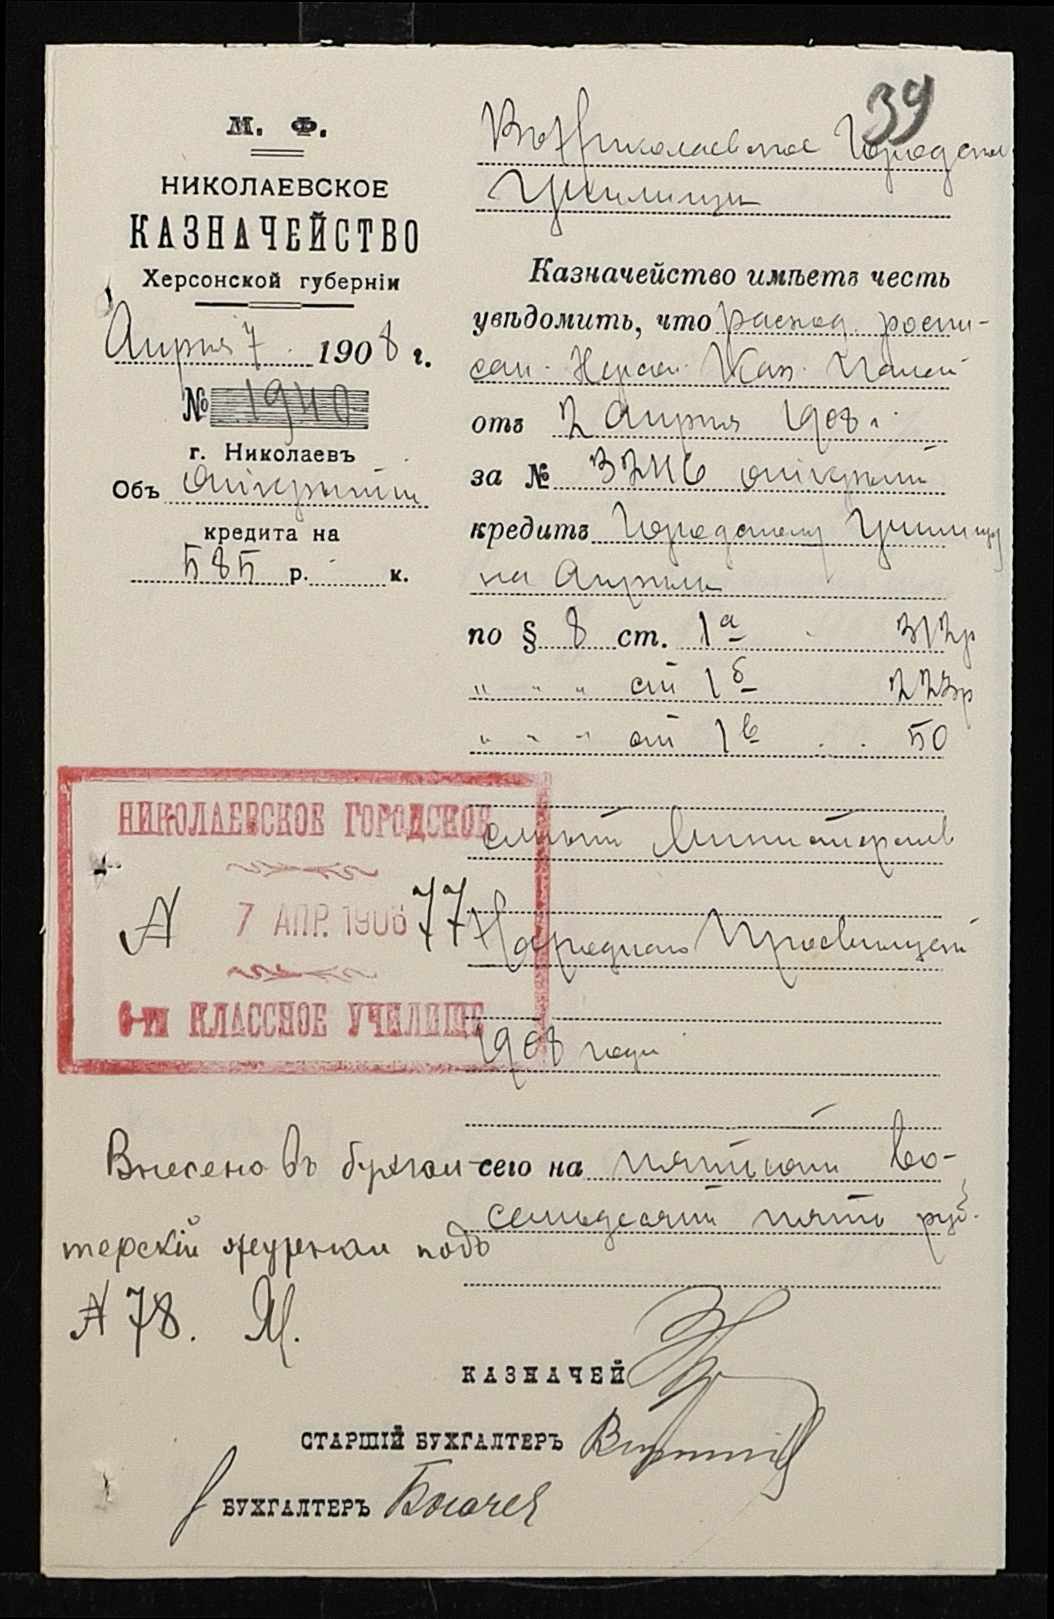 39
М. Ф.
НИКОЛАЕВСКОЕ
КАЗНАЧЕЙСТВО
Херсонской губерніи
Апрѣля 7 1908 г.
№ 1940
г. Николаевъ
Объ открытіи
кредита на
585 р. к.
Въ Николаевское Городское
Училище
Казначейство имѣетъ честь
увѣдомить, что расход. роспи-
сан. Херсон. Каз. Палат
отъ 2 Апрѣля 1908 г.
за № открытъ
кредитъ Городскому Училищу
на Апрѣль
по § 8 ст. 1а 312р
" " " ст 1б 223р
" " " ст 1в . . 50
смѣты Министерства
Народнаго Просвѣщен
1908 года
всего на пятьсотъ во-
семьдесятъ пять руб.
НИКОЛАЕВСКОЕ ГОРОДСКОЕ
№ 7 АПР. 1908 77
6-ти КЛАССНОЕ УЧИЛИЩЕ
Внесено въ бухгал-
терскій журналъ подъ
№ 78.
КАЗНАЧЕЙ
СТАРШІЙ БУХГАЛТЕРЪ
БУХГАЛТЕРЪ